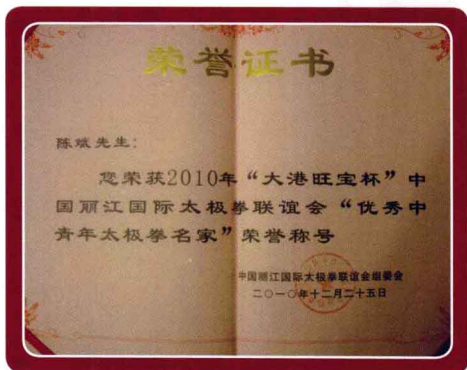 荣誉证书
陈斌先生：
您荣获2010年“大港旺宝杯”中
国丽江国际太极拳联谊会“优秀中
青年太极拳名家”荣誉称号
中国丽江国际太极拳联谊会组委会
二〇一〇年十二月二十五日